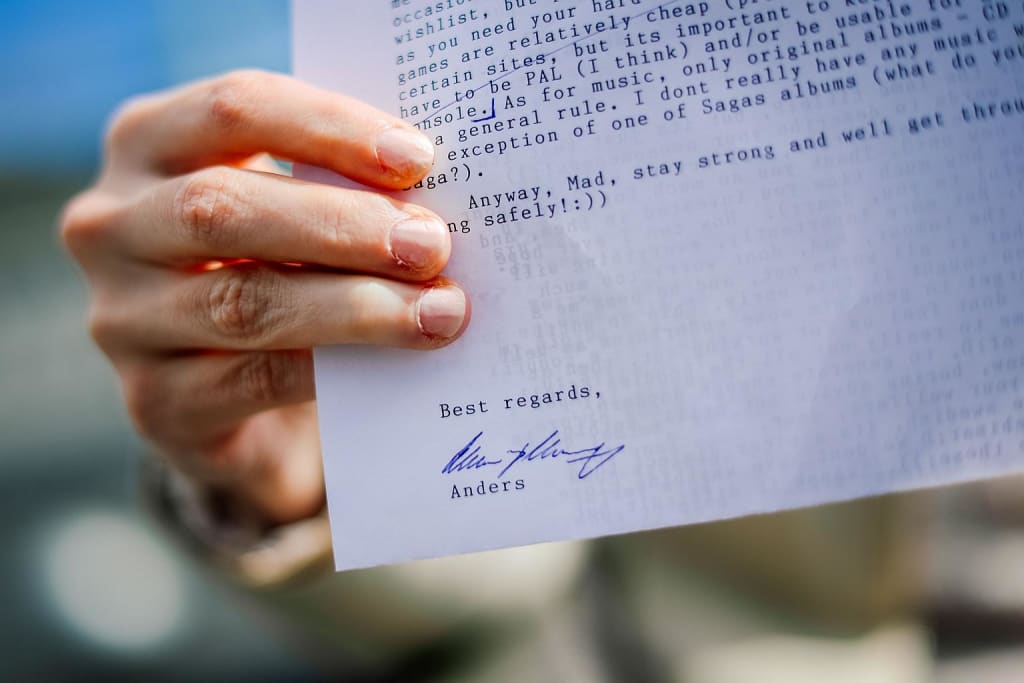 wishlist, but
as you need your hard
games are relatively cheap
certain sites, but its important to
have to be PAL (I think) and/or be usable for
onsole. As for music, only original albums - CD
a general rule. I dont really have any music w
exception of one of Sagas albums (what do you
aga?).
Anyway, Mad, stay strong and well get throu
ng safely!:))
Best regards,
Anders